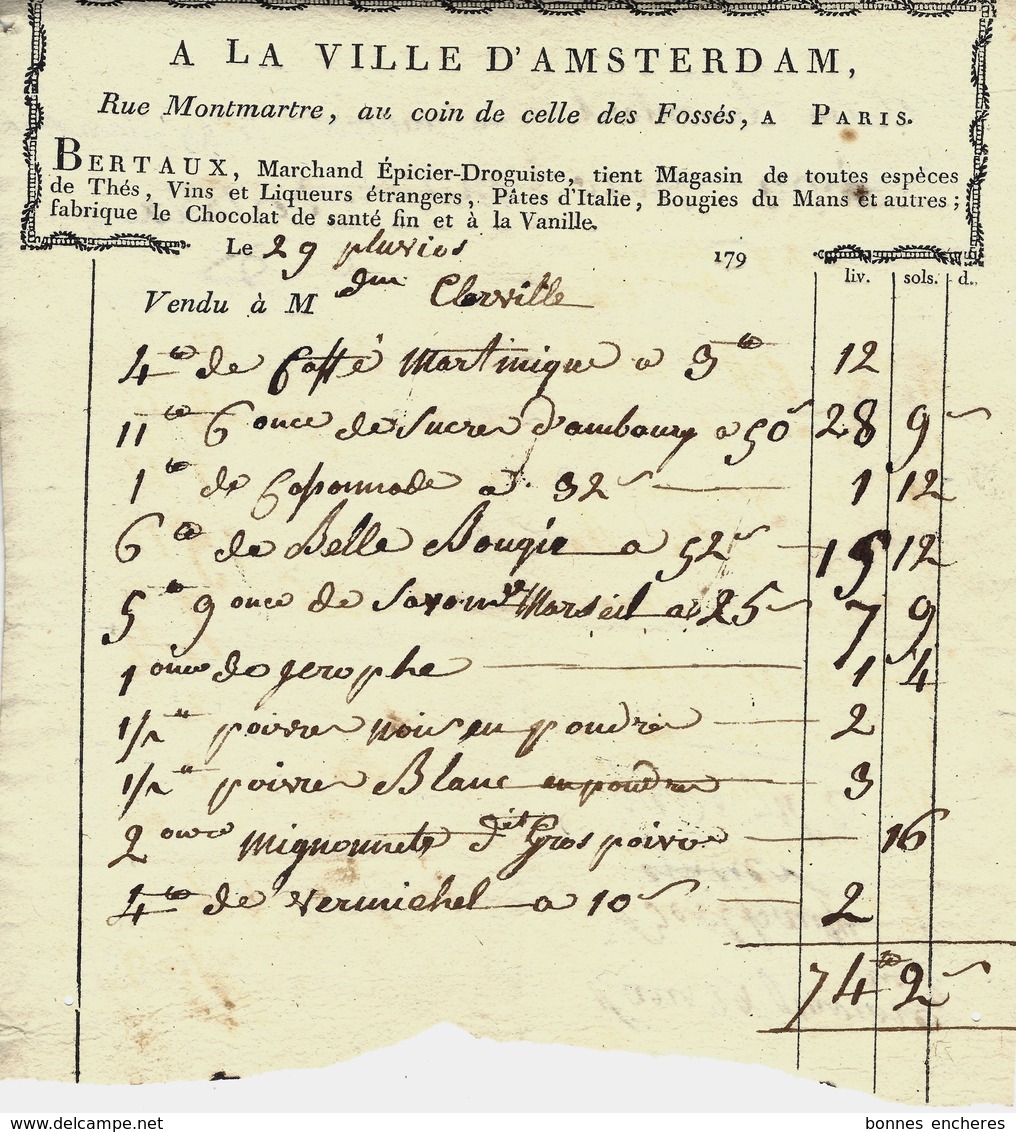 A LA VILLE D'AMSTERDAM,
Rue Montmartre, au coin de celle des Fossés, A PARIS.
BERTAUX, Marchand Épicier-Droguiste, tient Magasin de toutes espèces
de Thés, Vins et Liqueurs étrangers, Pâtes d'Italie, Bougies du Mans et autres;
fabrique le Chocolat de santé fin et à la Vanille.
Le 29 pluvios 179
liv. sols. d.
Vendu à M Clerville
4 tt de Caffé Martinique a 3 tt 12
11 tt 6 once de Sucre d'ambourg a 50 s 28 9 s
1 tt de a 32 s 1 12
6 tt de Belle Bougie a 52 s 15 12
5 tt 9 once de Savon Marseil a 25 s 7 9
1 once de gerophe 1 4
1/2 poivre noir en poudre 2
1/2 poivre Blanc en poudre 3
2 once mignonnete dit Gros poivre 16
4 tt de vermichel a 10 s 2
74 tt 2 s
www.delcampe.net
bonnes encheres